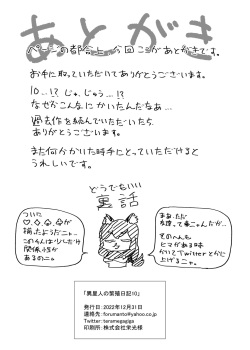 あとがき
ページの都合上、今回ここがあとがきです。
お手に取っていただいてありがとうございます。
10…!? じゅ、じゅう…!?
なぜかこんなにかいたんだなあ…
過去作を読んでいただいたら
ありがとうございます。
また何かかいた時手にとっていただけると
うれしいです。
どうでもいい
裏話
ついに
♡,◇,♤,♧が
揃ったようだニャ…
この4人は少しだけ
関係性が
あるのニャ
まあ、ただ
そのへんも
ヒマがある時
かいてTwitterとかに
上げるニャ。
「異星人の繁殖日記10」
発行日:2022年12月31日
連絡先:forumanto@yahoo.com
Twitter:teramegagiga
印刷所:株式会社栄光様